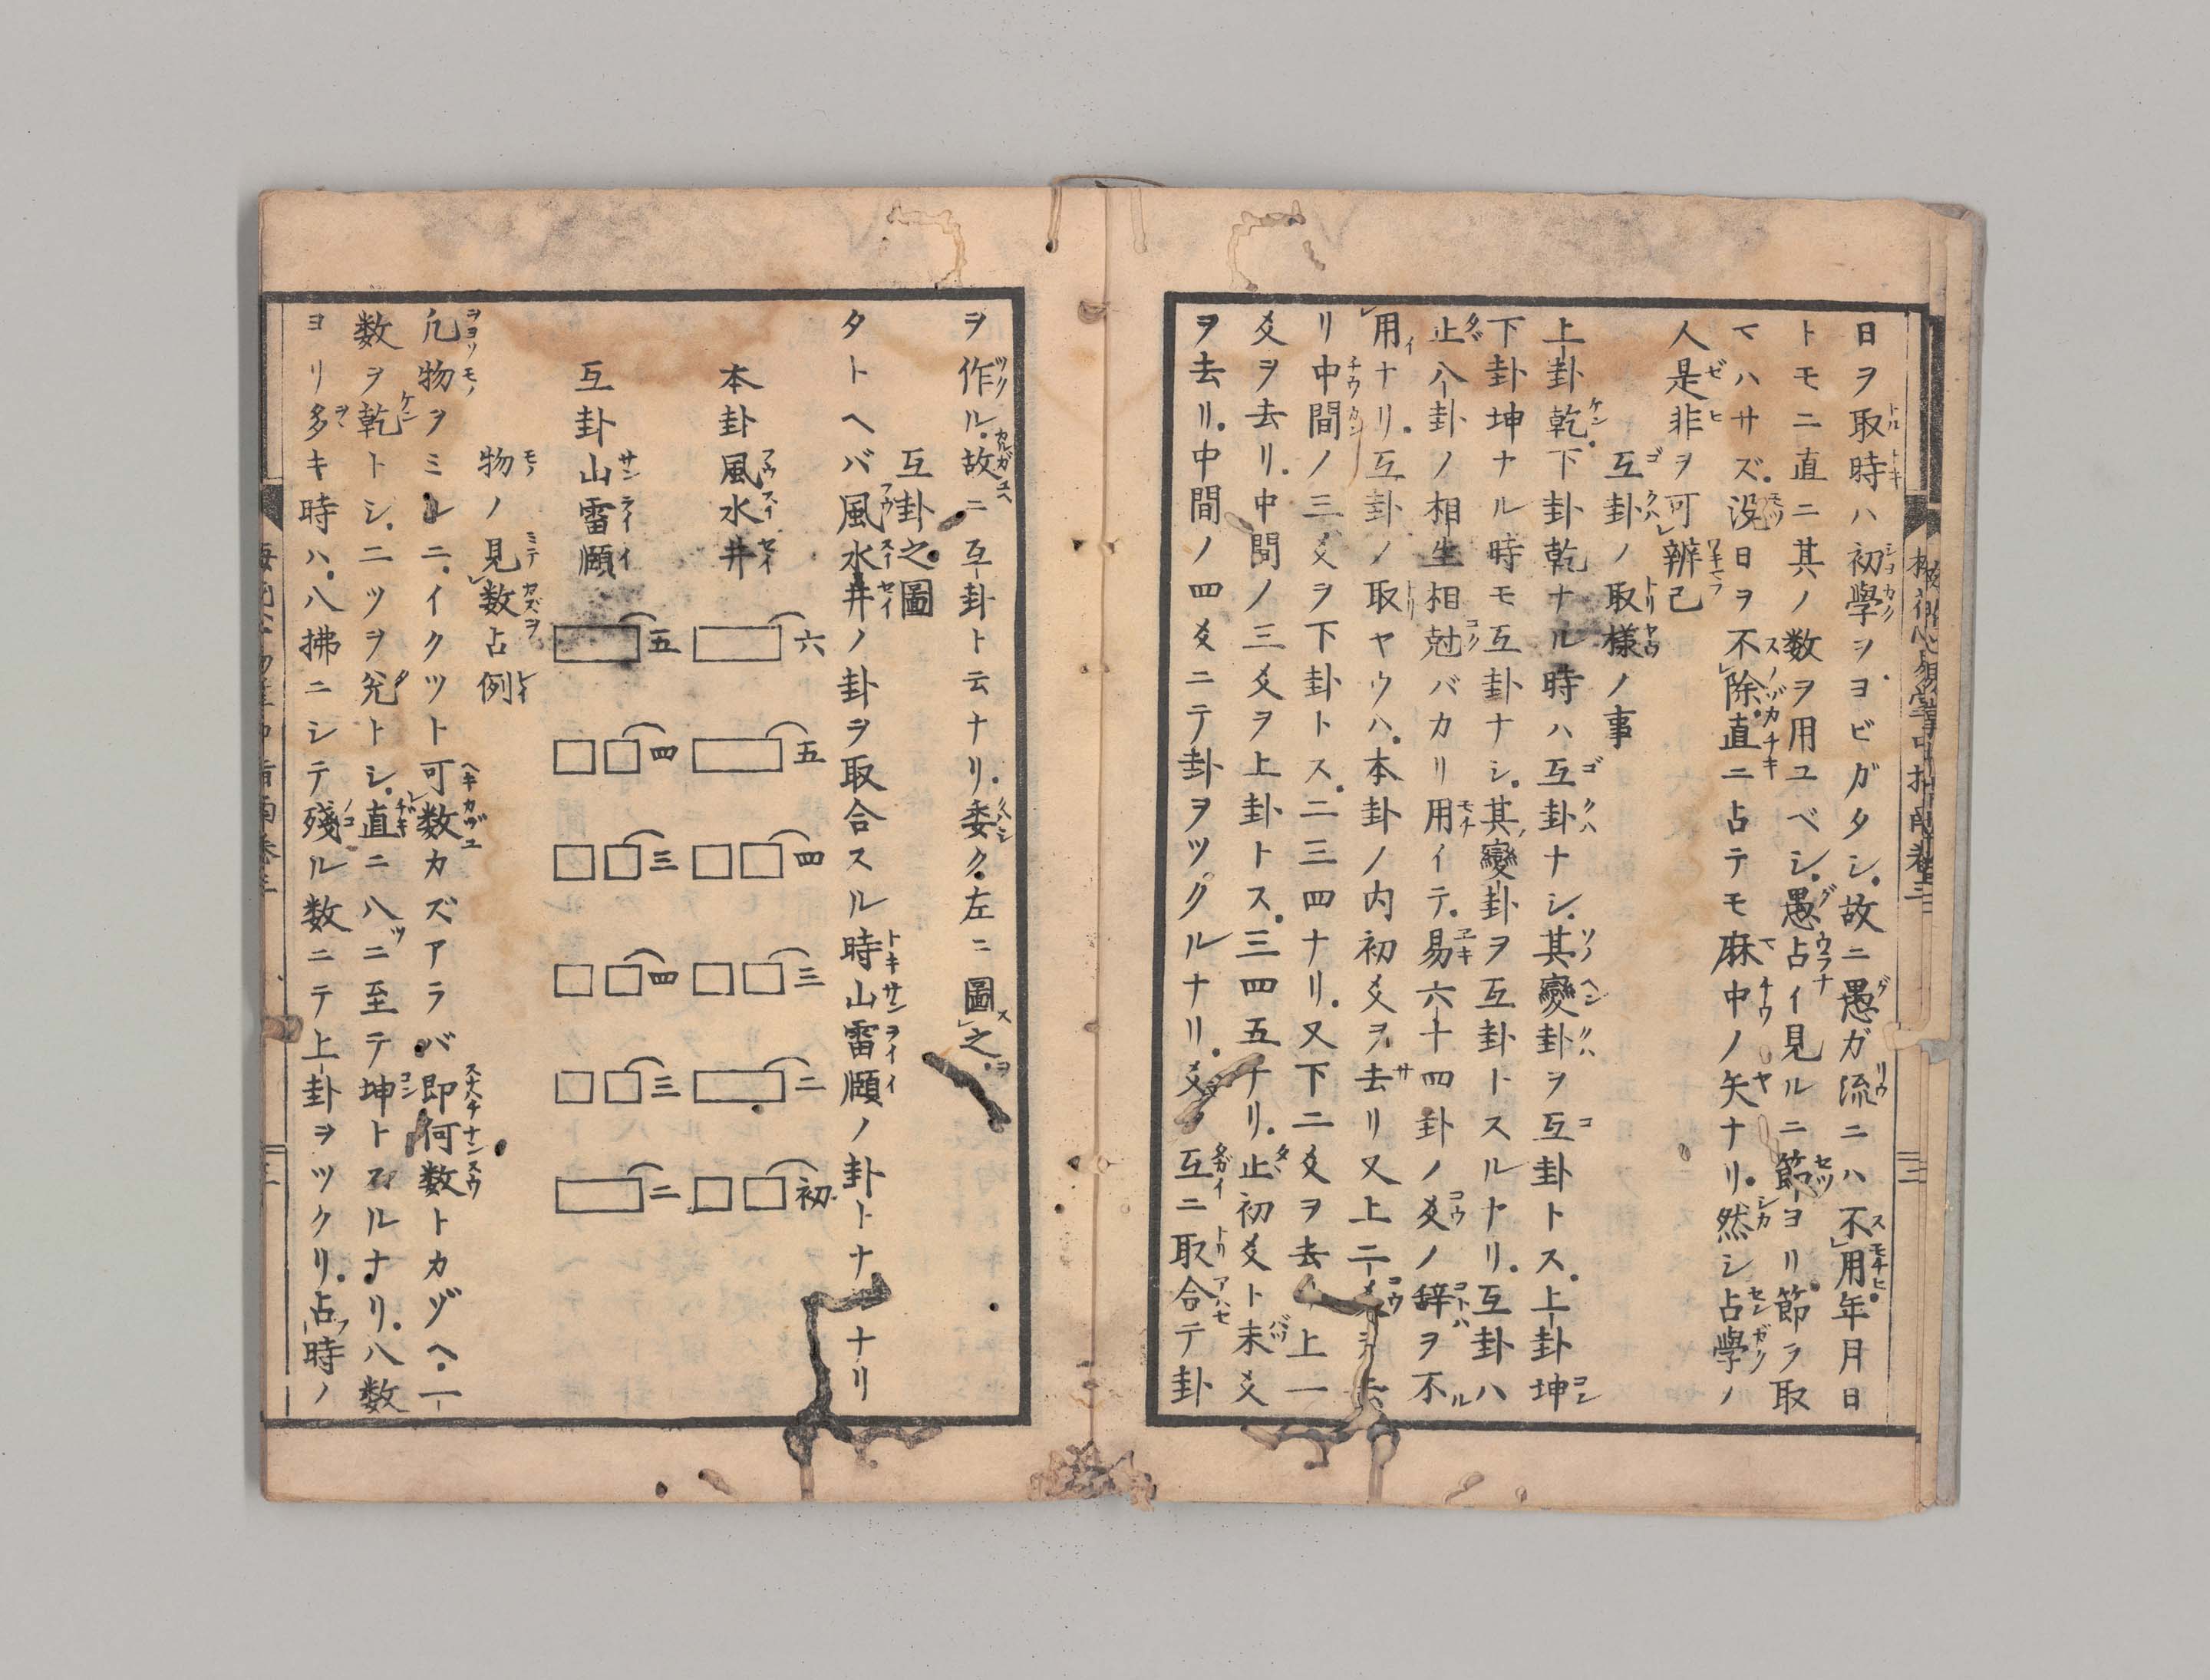 日ヲ取時ハ初學ヲヨビガタシ故ニ愚ガ流ニハ不用年月日
トモニ直ニ其ノ数ヲ用ユベシ愚占イ見ルニ節ヨリ節ヲ取
マハサズ没日ヲ不除直ニ占テモ麻中ノ矢ナリ然シ占學ノ
人是非ヲ可辨己
互卦ノ取樣ノ事
上卦乾下卦乾ナル時ハ互卦ナシ其變卦ヲ互卦トス上卦坤
下卦坤ナル時モ互卦ナシ其變卦ヲ互卦トスルナリ互卦ハ
止八卦ノ相生相尅バカリ用イテ易六十四卦ノ爻ノ辞ヲ不
用ナリ互卦ノ取ヤウハ本卦ノ内初爻ヲ去リ又上ニ爻ヲ去
リ中間ノ三爻ヲ下卦トス二三四ナリ又下二爻ヲ去リ上一
爻ヲ去リ中間ノ三爻ヲ上卦トス三四五ナリ止初爻ト末爻
ヲ去リ中間ノ四爻ニテ卦ヲツクルナリ爻互ニ取合テ卦
ヲ作ル故ニ互卦ト云ナリ委ク左ニ圖之
互卦之圖
タトヘバ風水井ノ卦ヲ取合スル時山雷頤ノ卦トナナリ
本卦風水井
六
五
四
三
二
初
互卦山雷頤
五
四
三
四
三
二
物ノ見数占例
凢物ヲミルニイクツト可数カズアラバ即何数トカゾヘ一
数ヲ乾トシ二ツヲ兊トシ直ニ八ニ至テ坤トスルナリ八数
ヨリ多キ時ハ八拂ニシテ殘ル数ニテ上卦ヲツクリ占時ノ